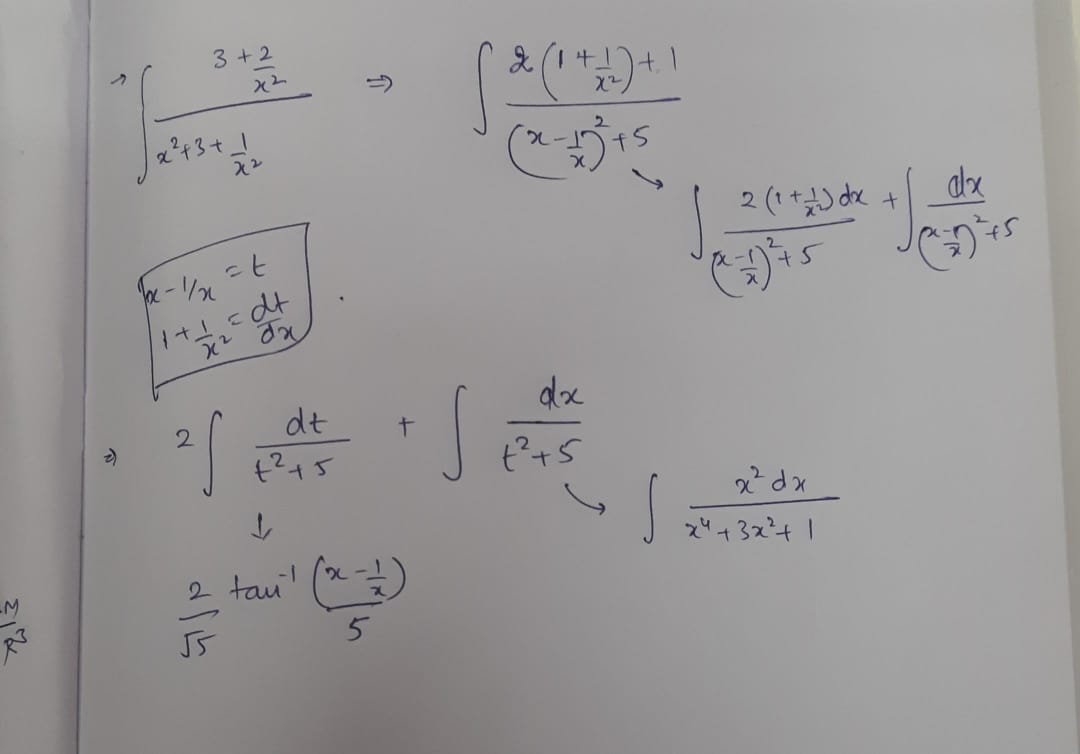 → ∫ (3 + 2/x²) / (x² + 3 + 1/x²) ⇒ ∫ (2(1 + 1/x²) + 1) / ((x - 1/x)² + 5)
→ ∫ 2(1 + 1/x²) dx / ((x - 1/x)² + 5) + ∫ dx / ((x - 1/x)² + 5)
x - 1/x = t
1 + 1/x² = dt/dx
⇒ 2 ∫ dt / (t² + 5) + ∫ dx / (t² + 5)
→ ∫ x² dx / (x⁴ + 3x² + 1)
↓
2/√5 tan⁻¹ (x - 1/x) / 5
M
R³